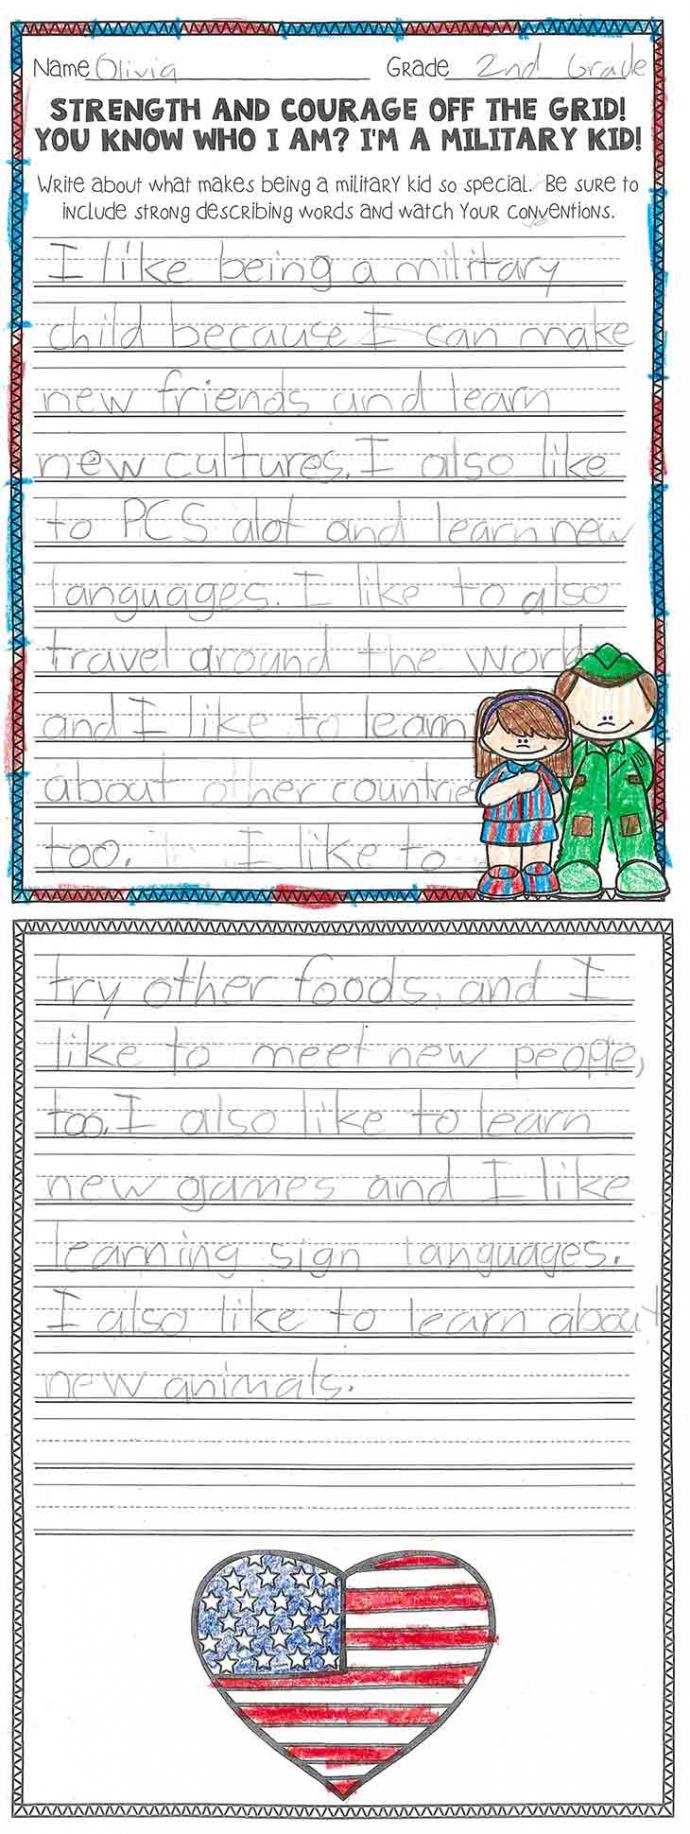 Name Olivia Grade 2nd Grade
STRENGTH AND COURAGE OFF THE GRID!
YOU KNOW WHO I AM? I'M A MILITARY KID!
Write about what makes being a military kid so special. Be sure to
include strong describing words and watch your conventions.
I like being a military
child because I can make
new friends and learn
new cultures. I also like
to PCS alot and learn new
languages. I like to also
travel around the world
and I like to learn
about other countries
too. I like to
try other foods, and I
like to meet new people,
too. I also like to learn
new games and I like
learning sign languages.
I also like to learn about
new animals.